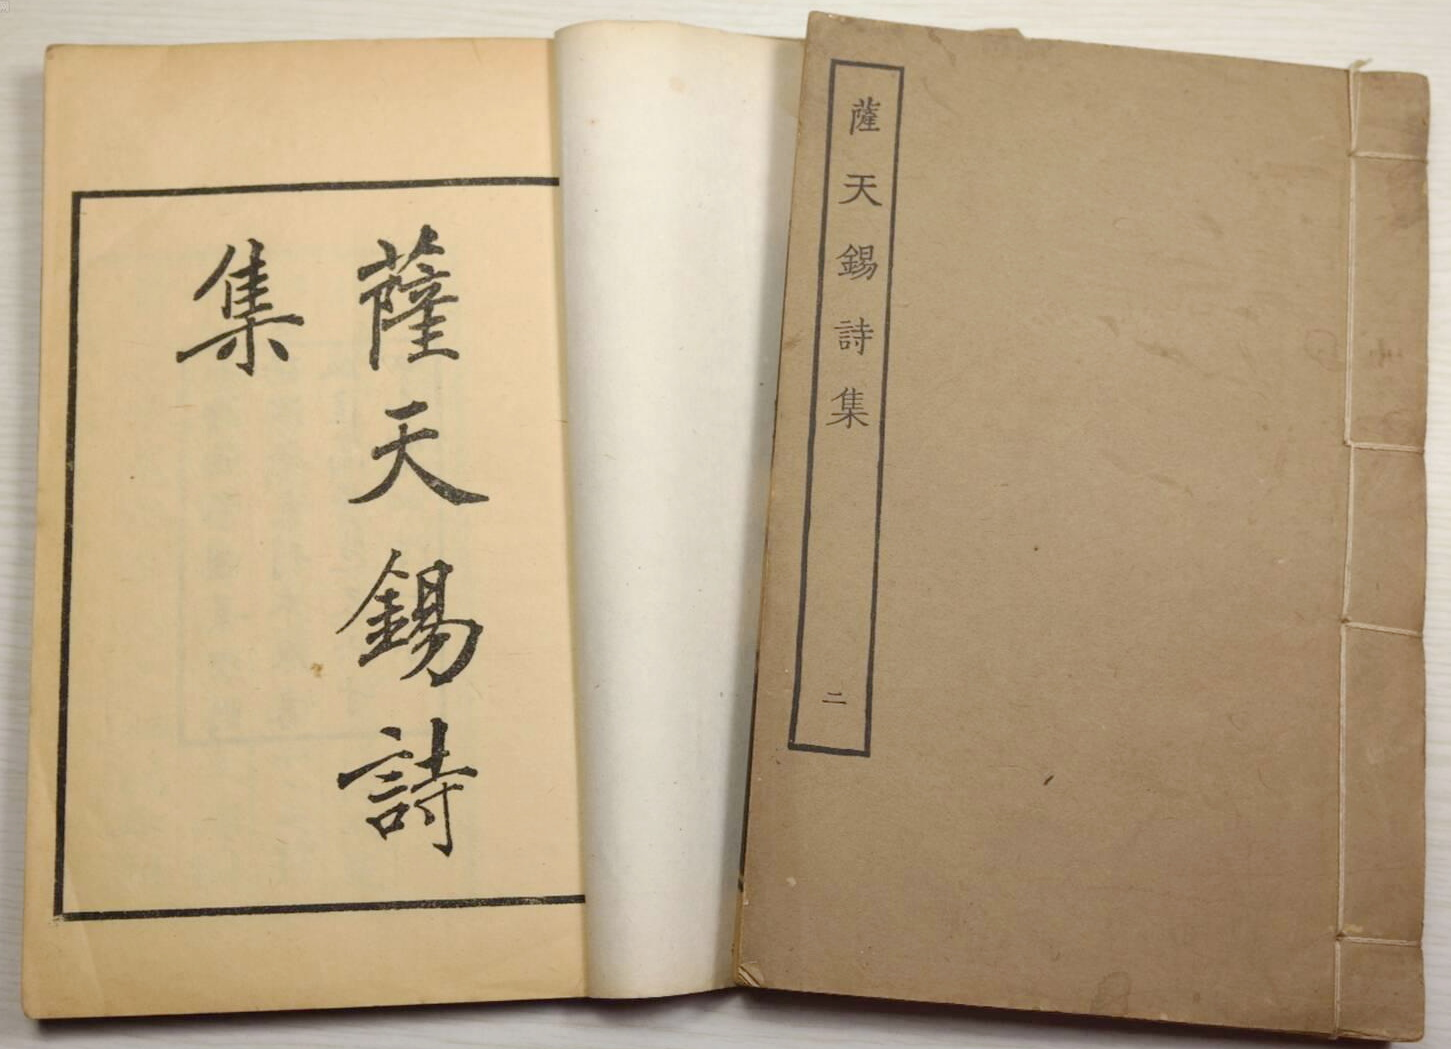 薩天錫詩
集
薩天錫詩集
二